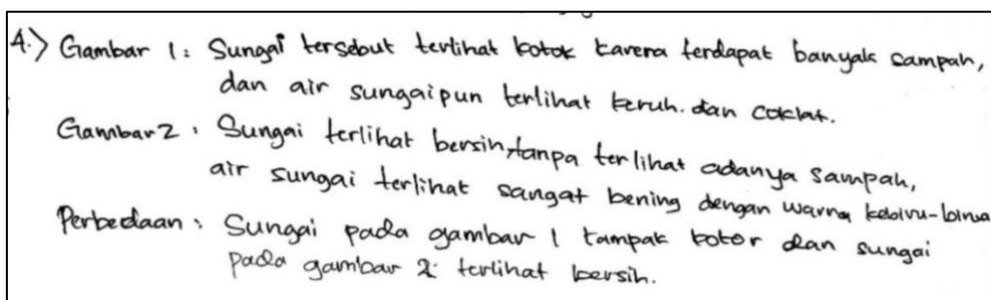 4.) Gambar 1: Sungai tersebut terlihat kotok karena terdapat banyak sampah,
dan air sungaipun terlihat keruh. dan coklat.
Gambar 2: Sungai terlihat bersih, tanpa terlihat adanya sampah,
air sungai terlihat sangat bening dengan warna
Perbedaan: Sungai pada gambar 1 tampak kotor dan sungai
pada gambar 2: terlihat bersih.